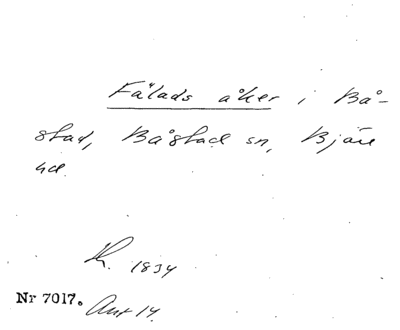 Fälads åker i Bå-
stad, Båstad sn, Bjäre
hd.
1834
Nr 7017.